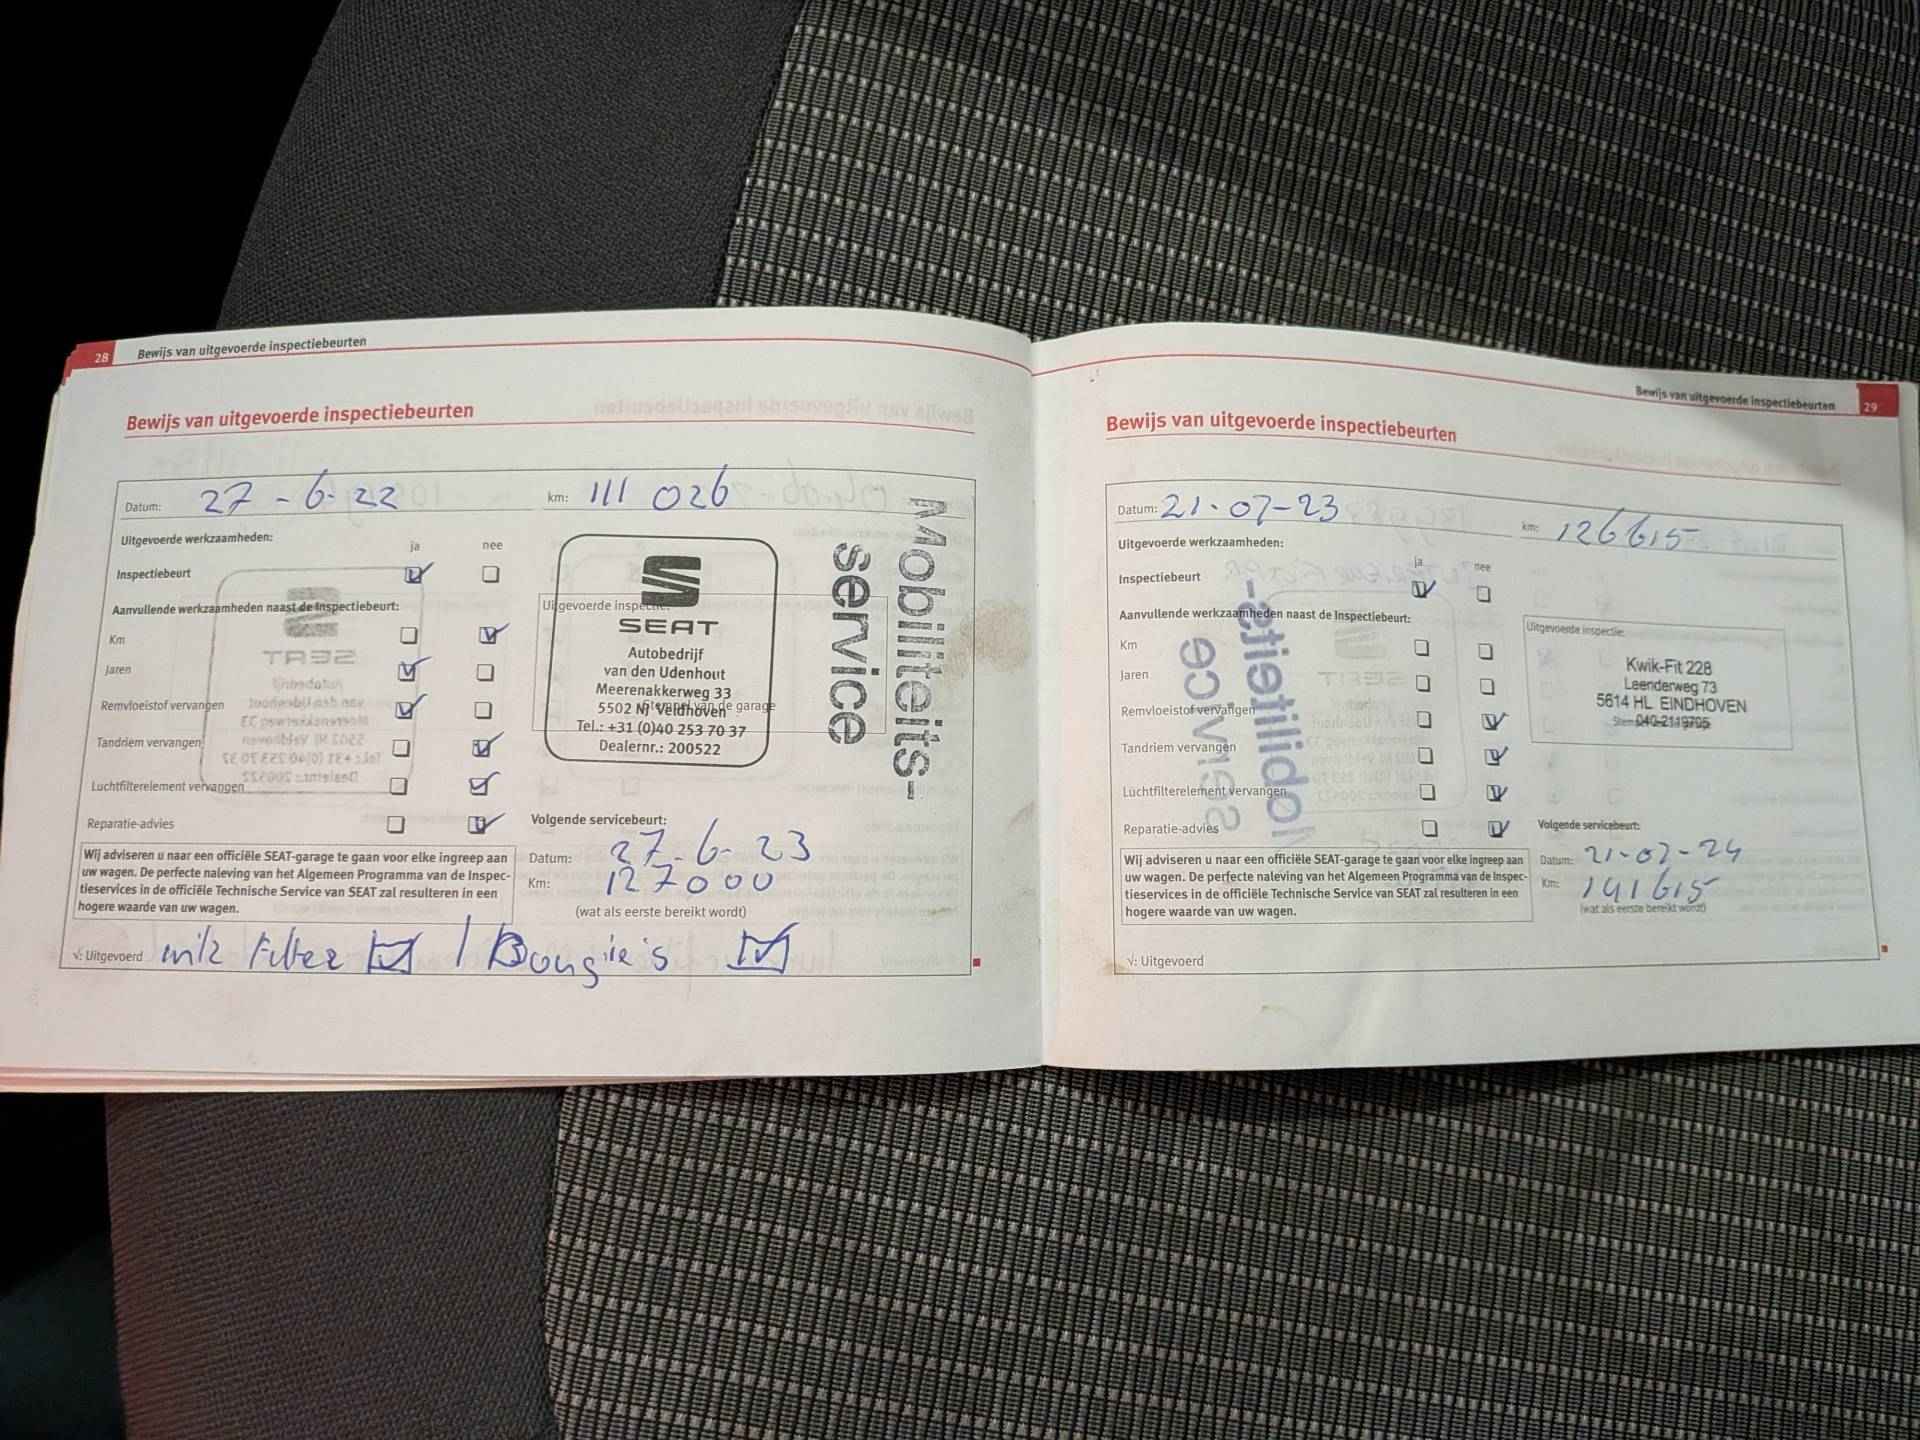 28 Bewijs van uitgevoerde inspectiebeurten
Bewijs van uitgevoerde inspectiebeurten
Datum: 27-6-22 km: 111 026
Uitgevoerde werkzaamheden:
ja nee
Inspectiebeurt
Aanvullende werkzaamheden naast de Inspectiebeurt:
Km
Jaren
Remvloeistof vervangen
Tandriem vervangen
Luchtfilterelement vervangen
Reparatie-advies
Uitgevoerde inspectie:
Stempel van de garage
SEAT
Autobedrijf
van den Udenhout
Meerenakkerweg 33
5502 NJ Veldhoven
Tel.: +31 (0)40 253 70 37
Dealernr.: 200522
Mobiliteits-
service
Volgende servicebeurt:
Datum: 27-6-23
Km: 127000
(wat als eerste bereikt wordt)
Wij adviseren u naar een officiële SEAT-garage te gaan voor elke ingreep aan
uw wagen. De perfecte naleving van het Algemeen Programma van de Inspec-
tieservices in de officiële Technische Service van SEAT zal resulteren in een
hogere waarde van uw wagen.
√: Uitgevoerd Filter / Bougie's
Bewijs van uitgevoerde inspectiebeurten 29
Bewijs van uitgevoerde inspectiebeurten
Datum: 21-07-23 km: 126615
Uitgevoerde werkzaamheden:
ja nee
Inspectiebeurt
Aanvullende werkzaamheden naast de Inspectiebeurt:
Km
Jaren
Remvloeistof vervangen
Tandriem vervangen
Luchtfilterelement vervangen
Reparatie-advies
Uitgevoerde inspectie:
Kwik-Fit 228
Leenderweg 73
5614 HL EINDHOVEN
040-2119705
Volgende servicebeurt:
Datum: 21-07-24
Km: 141615
(wat als eerste bereikt wordt)
Wij adviseren u naar een officiële SEAT-garage te gaan voor elke ingreep aan
uw wagen. De perfecte naleving van het Algemeen Programma van de Inspec-
tieservices in de officiële Technische Service van SEAT zal resulteren in een
hogere waarde van uw wagen.
√: Uitgevoerd